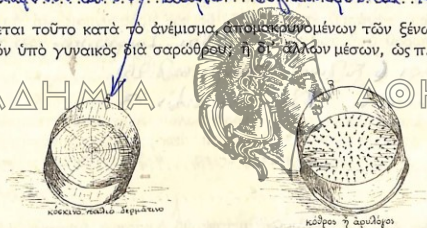 εται τοῦτο κατὰ τὸ ἀνέμισμα, ἀπομακρυνομένων τῶν ξένω
όν ὑπὸ γυναικὸς διὰ σαρώθρου; ἢ δι' ἄλλων μέσων, ὡς π.
ΑΔΗΜΙΑ ΑΘΗ
κόσκινο παλιό δερμάτινο
κόθρος ἢ ἀρυλόγος